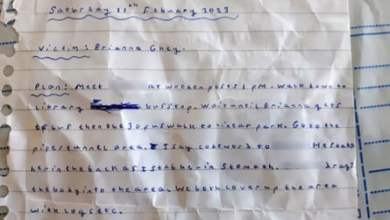 Saturday 11th February 2023
Victim: Brianna Ghey.
Plan: Meet at wooden posts 1PM. Walk down to
library bus stop. Wait until Brianna gets
off bus then the 3 of us walk to linear park. Go to the
pipe/tunnel area. I say code word to He stabs
her in the back as I stab her in stomach. drags
the body into the area. We both cover up the area
with logs etc.